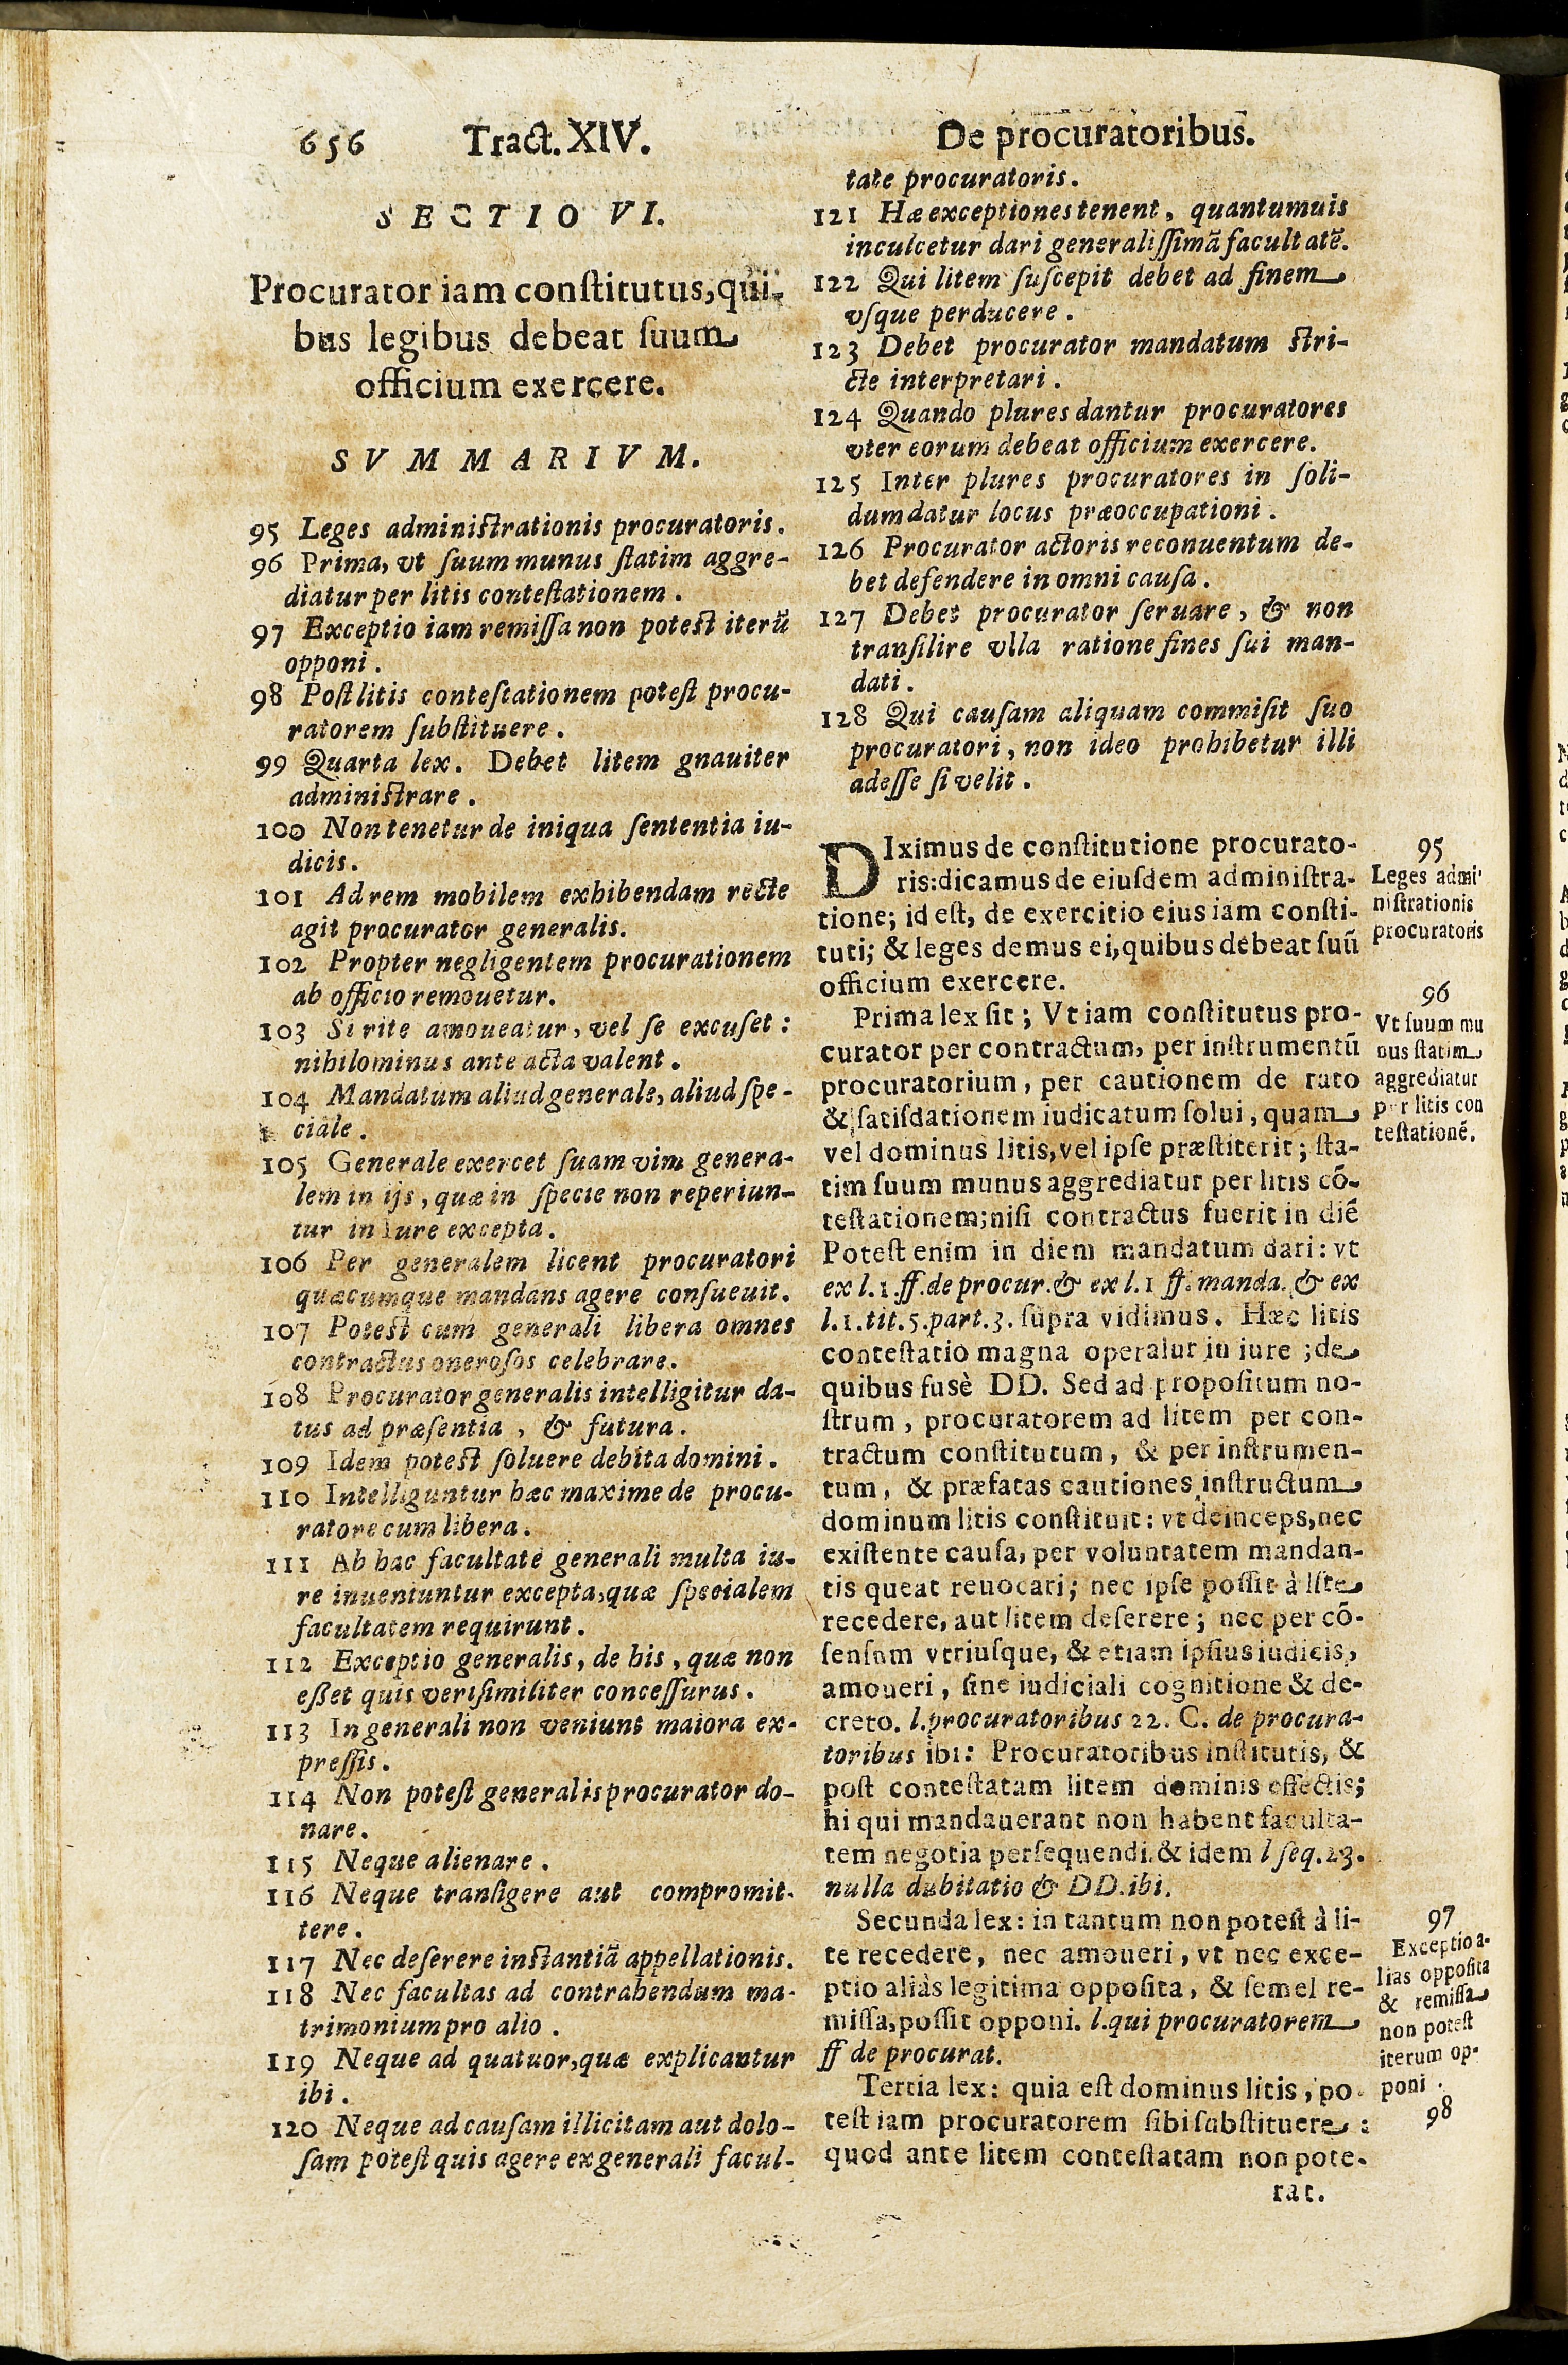 656 Tract. XIV. De procuratoribus.
SECTIO VI.
Procurator iam conſtitutus, qui-
bus legibus debeat ſuum
officium exercere.
SVMMARIVM.
95 Leges adminiſtrationis procuratoris.
96 Prima, vt ſuum munus ſtatim aggre-
diatur per litis conteſtationem.
97 Exceptio iam remiſſa non poteſt iterū
opponi.
98 Poſt litis conteſtationem poteſt procu-
ratorem ſubſtituere.
99 Quarta lex. Debet litem gnauiter
adminiſtrare.
100 Non tenetur de iniqua ſententia iu-
dicis.
101 Ad rem mobilem exhibendam recte
agit procurator generalis.
102 Propter negligentem procurationem
ab officio remouetur.
103 Si rite amoueatur, vel ſe excuſet:
nihilominus ante acta valent.
104 Mandatum aliud generale, aliud ſpe-
ciale.
105 Generale exercet ſuam vim genera-
lem in ijs, quæ in ſpecie non reperiun-
tur in Iure excepta.
106 Per generalem licent procuratori
quæcumque mandans agere conſueuit.
107 Poteſt cum generali libera omnes
contractus oneroſos celebrare.
108 Procurator generalis intelligitur da-
tus ad præſentia, & futura.
109 Idem poteſt ſoluere debita domini.
110 Intelliguntur hæc maxime de procu-
ratore cum libera.
111 Ab hac facultate generali multa iu-
re inueniuntur excepta, quæ ſpecialem
facultatem requirunt.
112 Exceptio generalis, de his, quæ non
eßet quis veriſimiliter conceſſurus.
113 In generali non veniunt maiora ex-
preſſis.
114 Non poteſt generalis procurator do-
nare.
115 Neque alienare.
116 Neque tranſigere aut compromit-
tere.
117 Nec deſerere inſtantiā appellationis.
118 Nec facultas ad contrahendum ma-
trimonium pro alio.
119 Neque ad quatuor, quæ explicantur
ibi.
120 Neque ad cauſam illicitam aut dolo-
ſam poteſt quis agere ex generali facul-
tate procuratoris.
121 Hæ exceptiones tenent, quantumuis
inculcetur dari generaliſſimā facultatē.
122 Qui litem ſuſcepit debet ad finem
vſque perducere.
123 Debet procurator mandatum ſtri-
cte interpretari.
124 Quando plures dantur procuratores
vter eorum debeat officium exercere.
125 Inter plures procuratores in ſoli-
dum datur locus præoccupationi.
126 Procurator actoris reconuentum de-
bet defendere in omni cauſa.
127 Debet procurator ſeruare, & non
tranſilire vlla ratione fines ſui man-
dati.
128 Qui cauſam aliquam commiſit ſuo
procuratori, non ideo prohibetur illi
adeſſe ſi velit.
DIximus de conſtitutione procurato-
ris: dicamus de eiuſdem adminiſtra-
tione; id eſt, de exercitio eius iam conſti-
tuti; & leges demus ei, quibus debeat ſuū
officium exercere.
95
Leges admi-
niſtrationis
procuratoris
Prima lex ſit; Vt iam conſtitutus pro-
curator per contractum, per inſtrumentū
procuratorium, per cautionem de rato
& ſatiſdationem iudicatum ſolui, quam
vel dominus litis, vel ipſe præſtiterit; ſta-
tim ſuum munus aggrediatur per litis cō-
teſtationem; niſi contractus fuerit in diē
Poteſt enim in diem mandatum dari: vt
ex l. 1. ff. de procur. & ex l. 1 ff. manda. & ex
l. 1. tit. 5. part. 3. ſupra vidimus. Hæc litis
conteſtatio magna operatur in iure; de
quibus fusè DD. Sed ad propoſitum no-
ſtrum, procuratorem ad litem per con-
tractum conſtitutum, & per inſtrumen-
tum, & præfatas cautiones inſtructum
dominum litis conſtituit: vt deinceps, nec
exiſtente cauſa, per voluntatem mandan-
tis queat reuocari; nec ipſe poſſit à lite
recedere, aut litem deſerere; nec per cō-
ſenſum vtriuſque, & etiam ipſius iudicis,
amoueri, ſine iudiciali cognitione & de-
creto. l. procuratoribus 22. C. de procura-
toribus ibi: Procuratoribus inſtitutis, &
poſt conteſtatam litem dominis effectis;
hi qui mandauerant non habent faculta-
tem negotia perſequendi. & idem l ſeq. 23.
nulla dubitatio & DD. ibi.
96
Vt ſuum mu
nus ſtatim
aggrediatur
per litis con
teſtationē.
Secunda lex: in tantum non poteſt à li-
te recedere, nec amoueri, vt nec exce-
ptio aliàs legitima oppoſita, & ſemel re-
miſſa, poſſit opponi. l. qui procuratorem
ff de procurat.
97
Exceptio a-
lias oppoſita
& remiſſa
non poteſt
iterum op-
poni.
Tertia lex: quia eſt dominus litis, po-
teſt iam procuratorem ſibi ſubſtituere:
quod ante litem conteſtatam non pote-
98
rat.